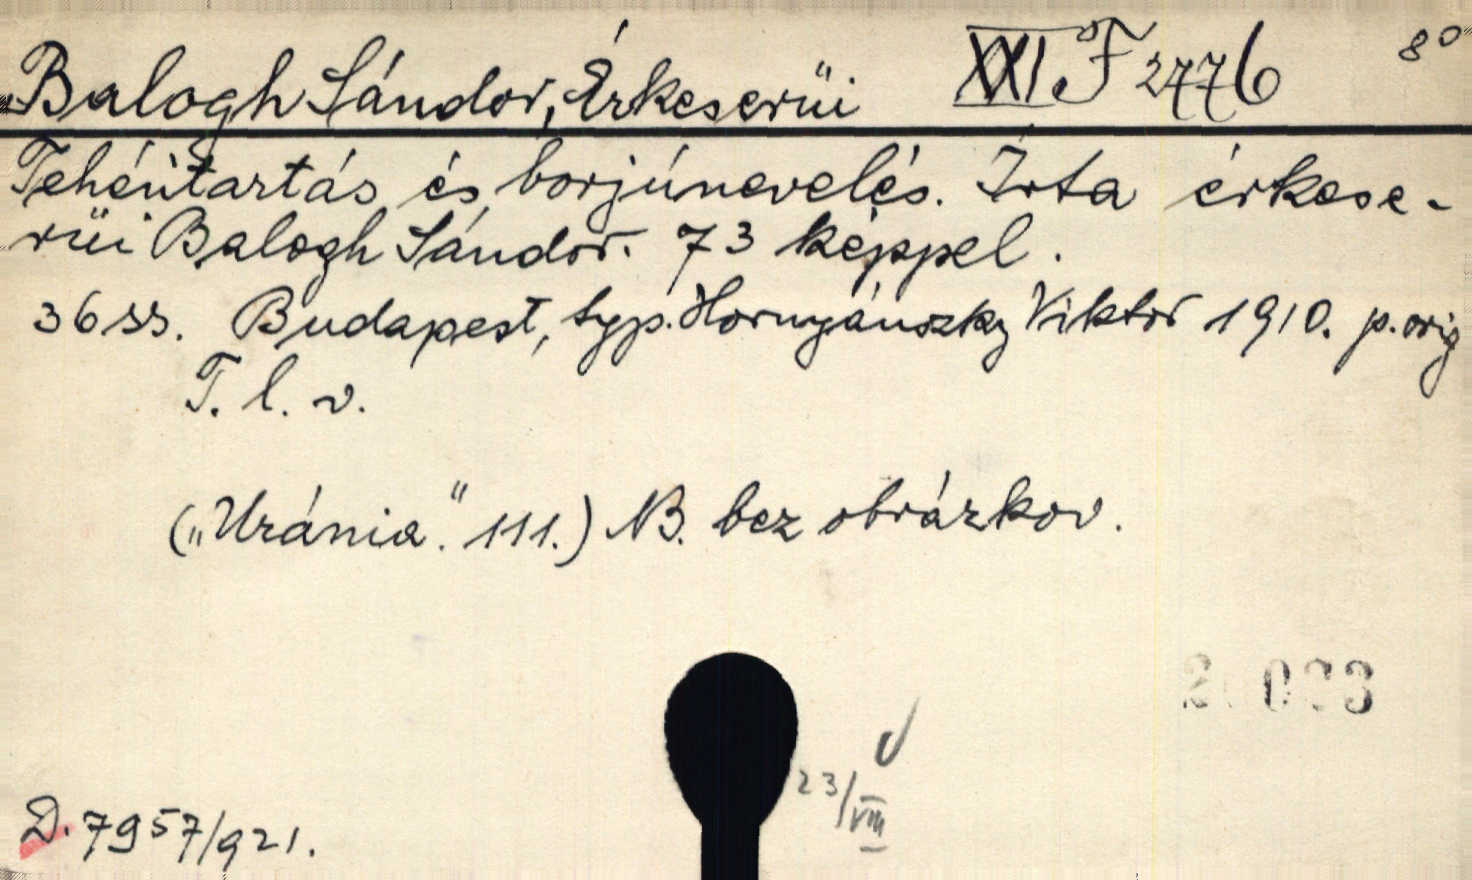 Balogh Sándor, Érkeserüi XXI F 2776 8°
Tehéntartás és borjúnevelés. Írta érkese-
rüi Balogh Sándor. 73 képpel.
36 ss. Budapest, typ. Hornyánszky Viktor 1910. p. orig
T. l. v.
("Uránia." 111.) NB. bez obrázkov.
23/VIII
D. 7957/921.